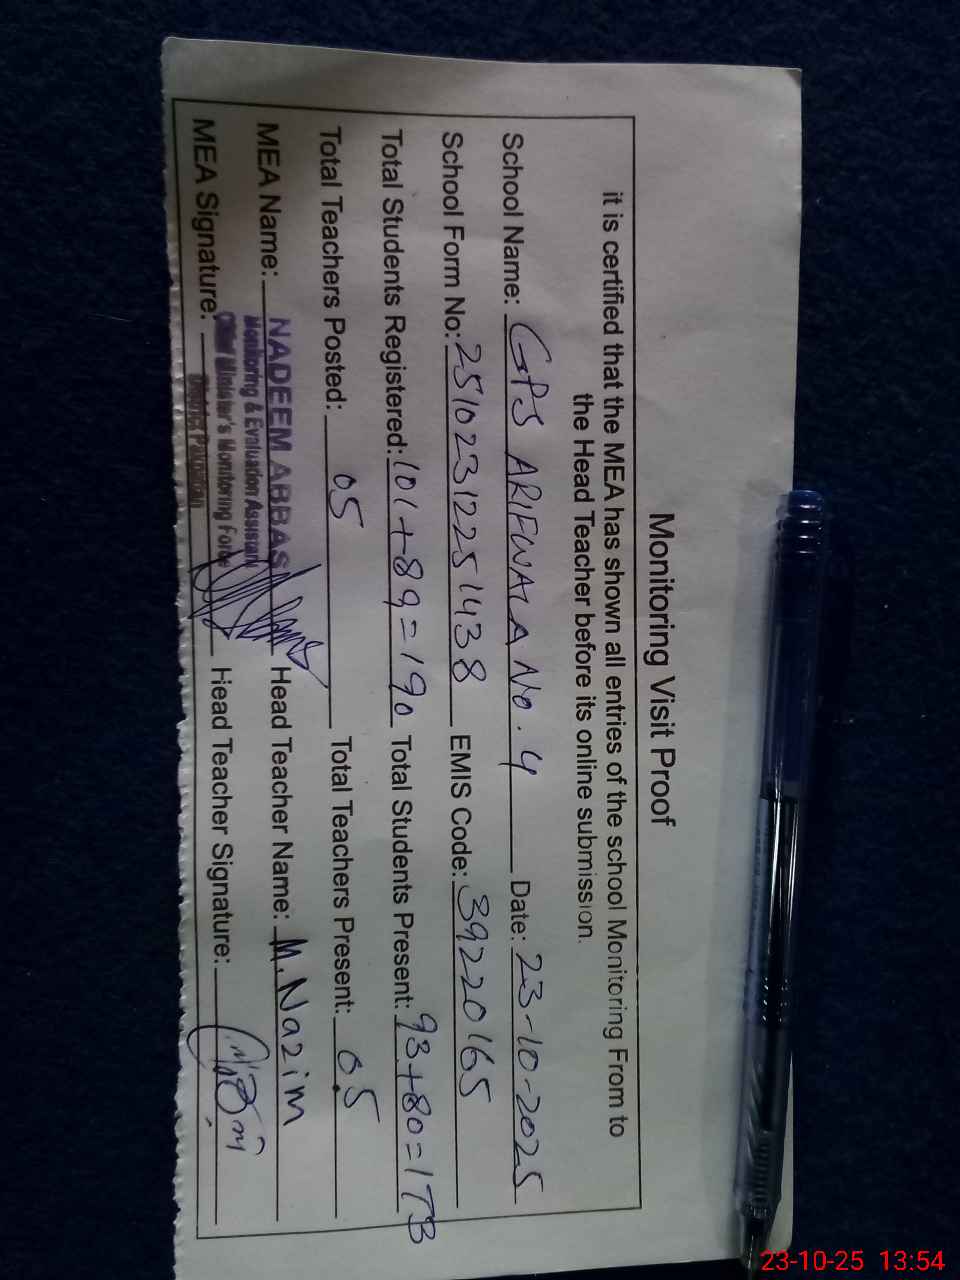 Monitoring Visit Proof
it is certified that the MEA has shown all entries of the school Monitoring From to
the Head Teacher before its online submission.
School Name: GPS ARIFWALA No. 4 Date: 23-10-2025
School Form No: 25102312251438 EMIS Code: 39220165
Total Students Registered: 101+89=190 Total Students Present: 93+80=173
Total Teachers Posted: 05 Total Teachers Present: 05
MEA Name: NADEEM ABBAS Head Teacher Name: M. Nazim
Monitoring & Evaluation Assistant
Chief Minister's Monitoring Force
District Pakpattan
MEA Signature: Head Teacher Signature:
23-10-25 13:54